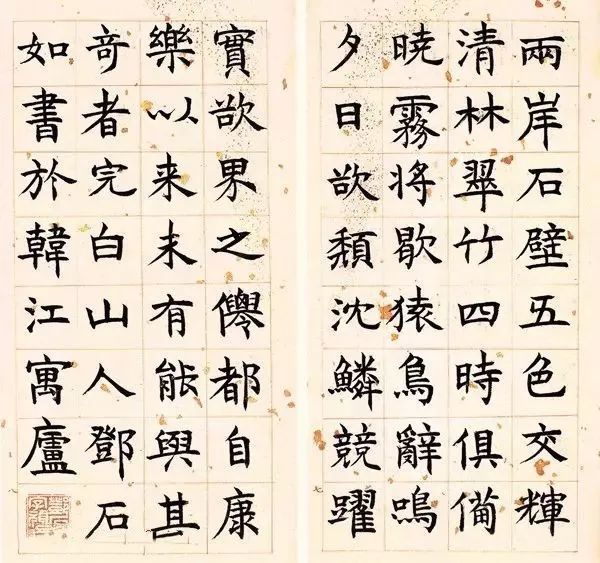 兩岸石壁五色交輝
清林翠竹四時俱備
曉霧将歇猿鳥辭鳴
夕日欲頹沈鱗競躍
實欲界之僊都自康
樂以来未有能與其
奇者完白山人鄧石
如書於韓江寓廬